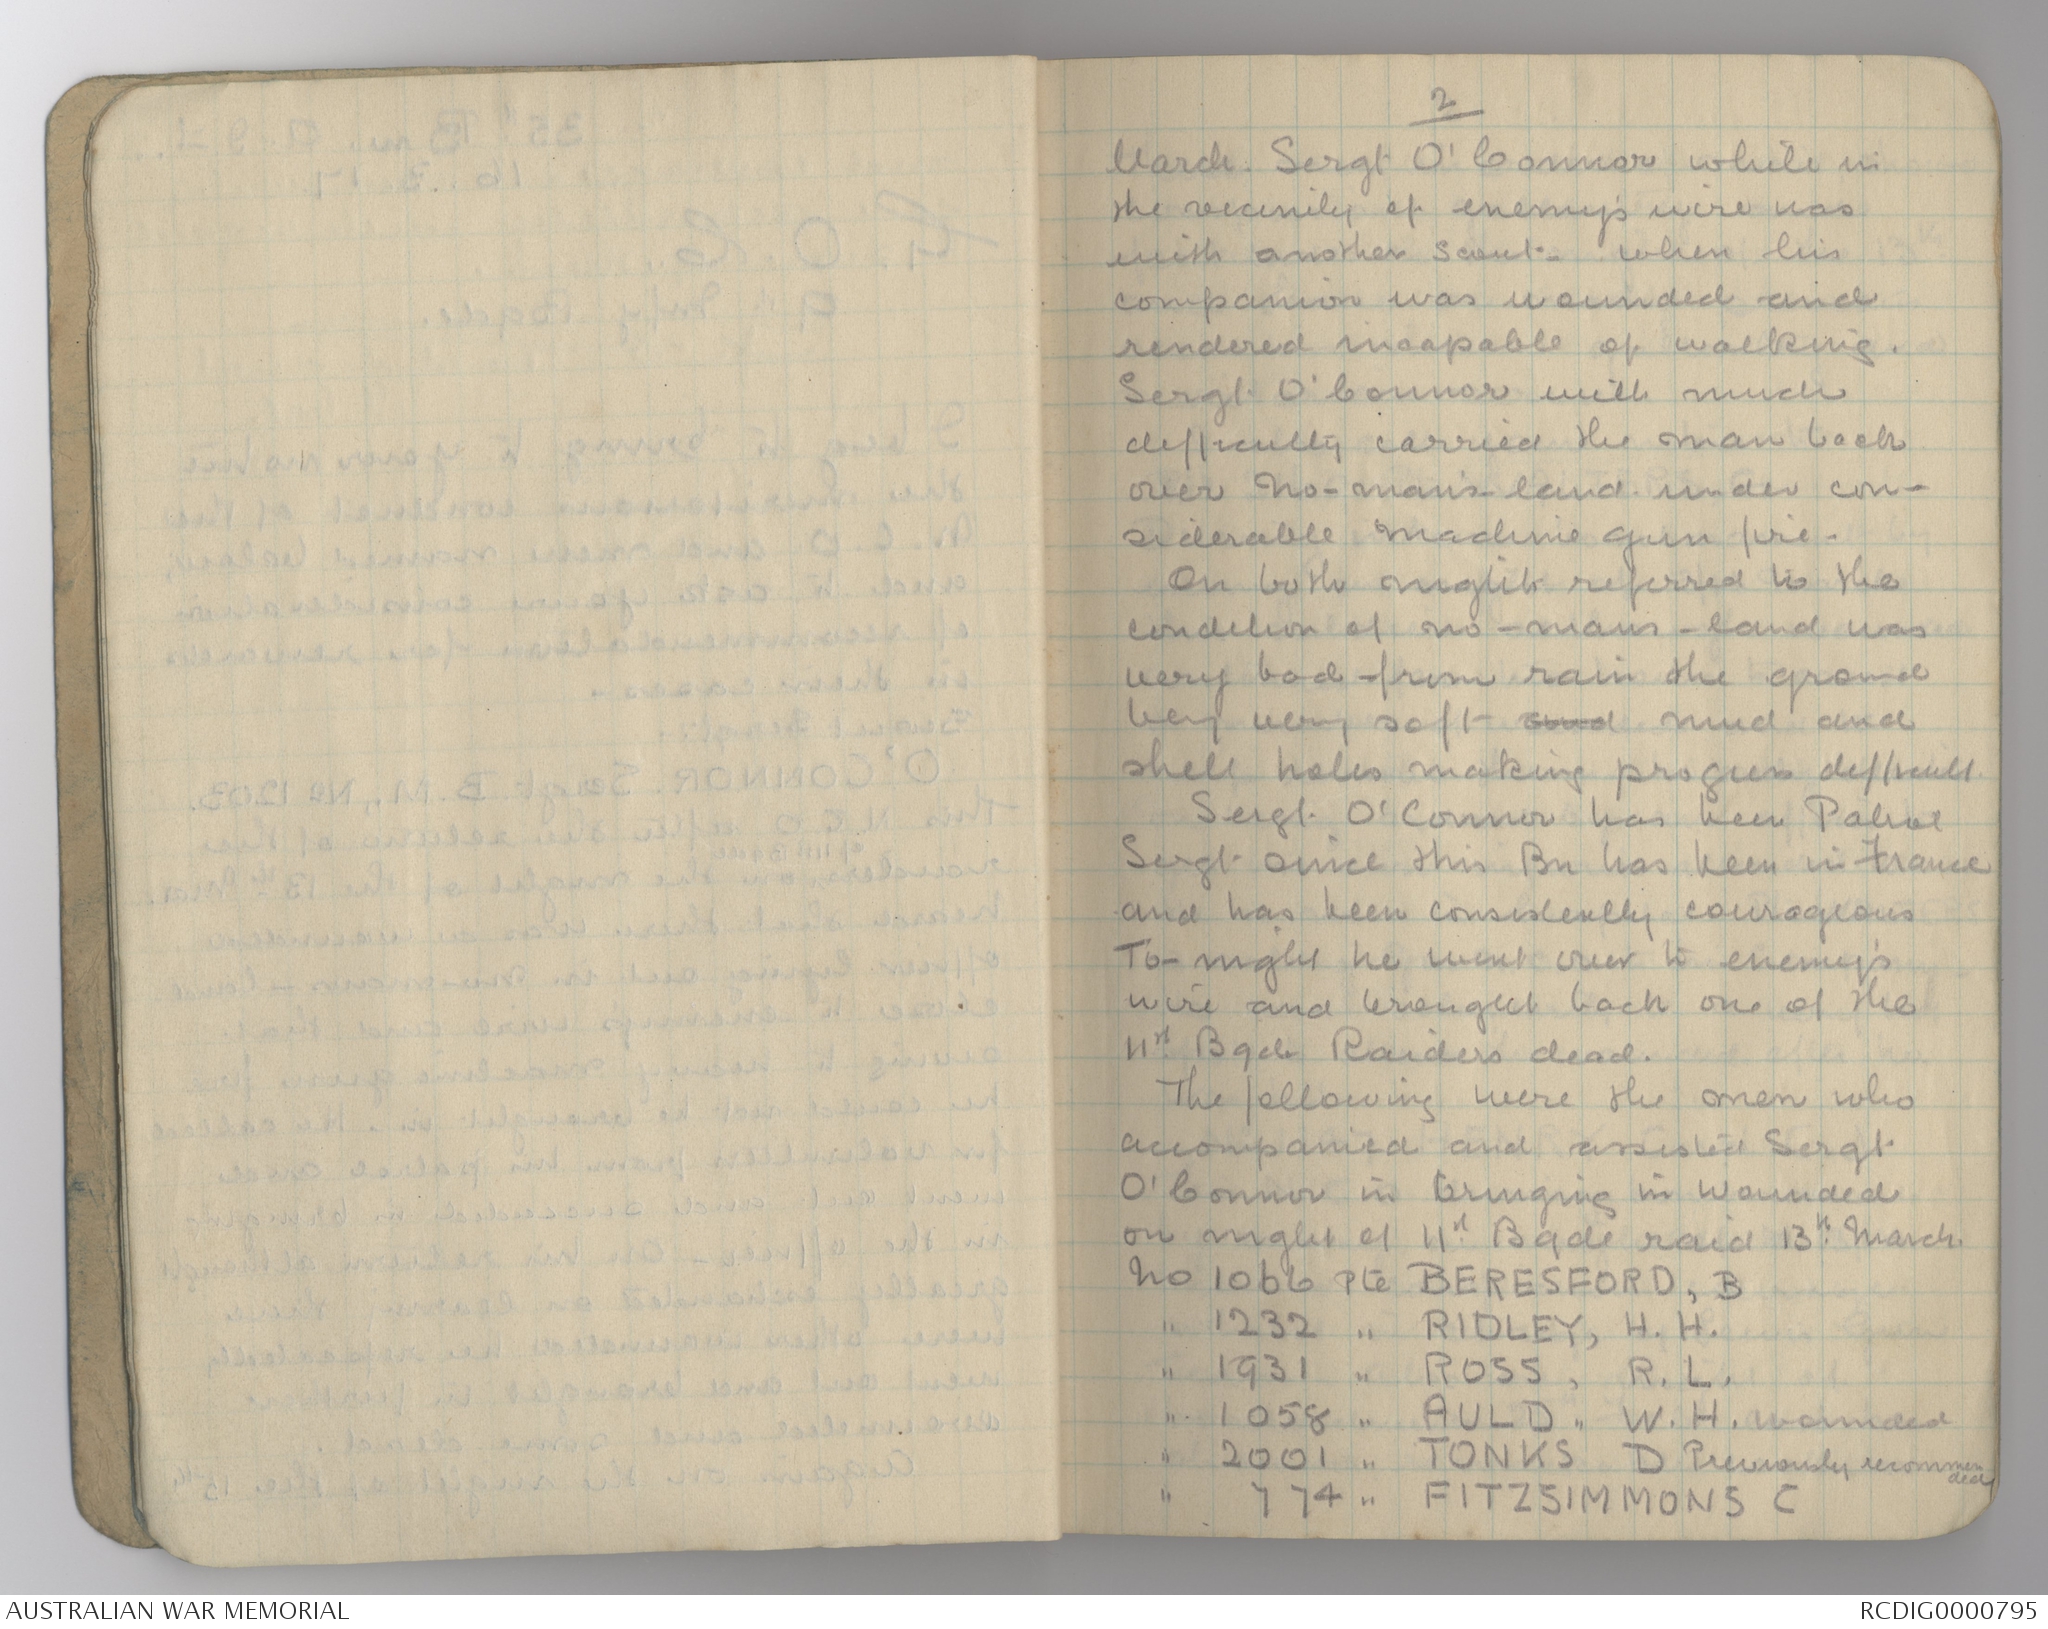 2
March. Sergt O'Connor while in
the vicinity of enemy's wire was
with another scout - when his
companion was wounded and
rendered incapable of walking.
Sergt O'Connor with much
difficulty carried the man back
over no-man's-land under con-
siderable machine gun fire.
On both nights referred to the
condition of no-mans-land was
very bad from rain the ground
being very soft and mud and
shell holes making progress difficult.
Sergt. O'Connor has been Patrol
Sergt since this Bn has been in France
and has been consistently courageous
To-night he went over to enemy's
wire and brought back one of the
11st Bgde Raiders dead.
The following were the men who
accompanied and assisted Sergt
O'Connor in bringing in wounded
on night of 11st Bgde raid 13th March
No 1066 Pte BERESFORD, B
" 1232 " RIDLEY, H. H.
" 1931 " ROSS, R. L.
" 1058 " AULD, W. H. wounded
" 2001 " TONKS D Previously recommen
ded
" 774 " FITZSIMMONS C
AUSTRALIAN WAR MEMORIAL
RCDIG0000795